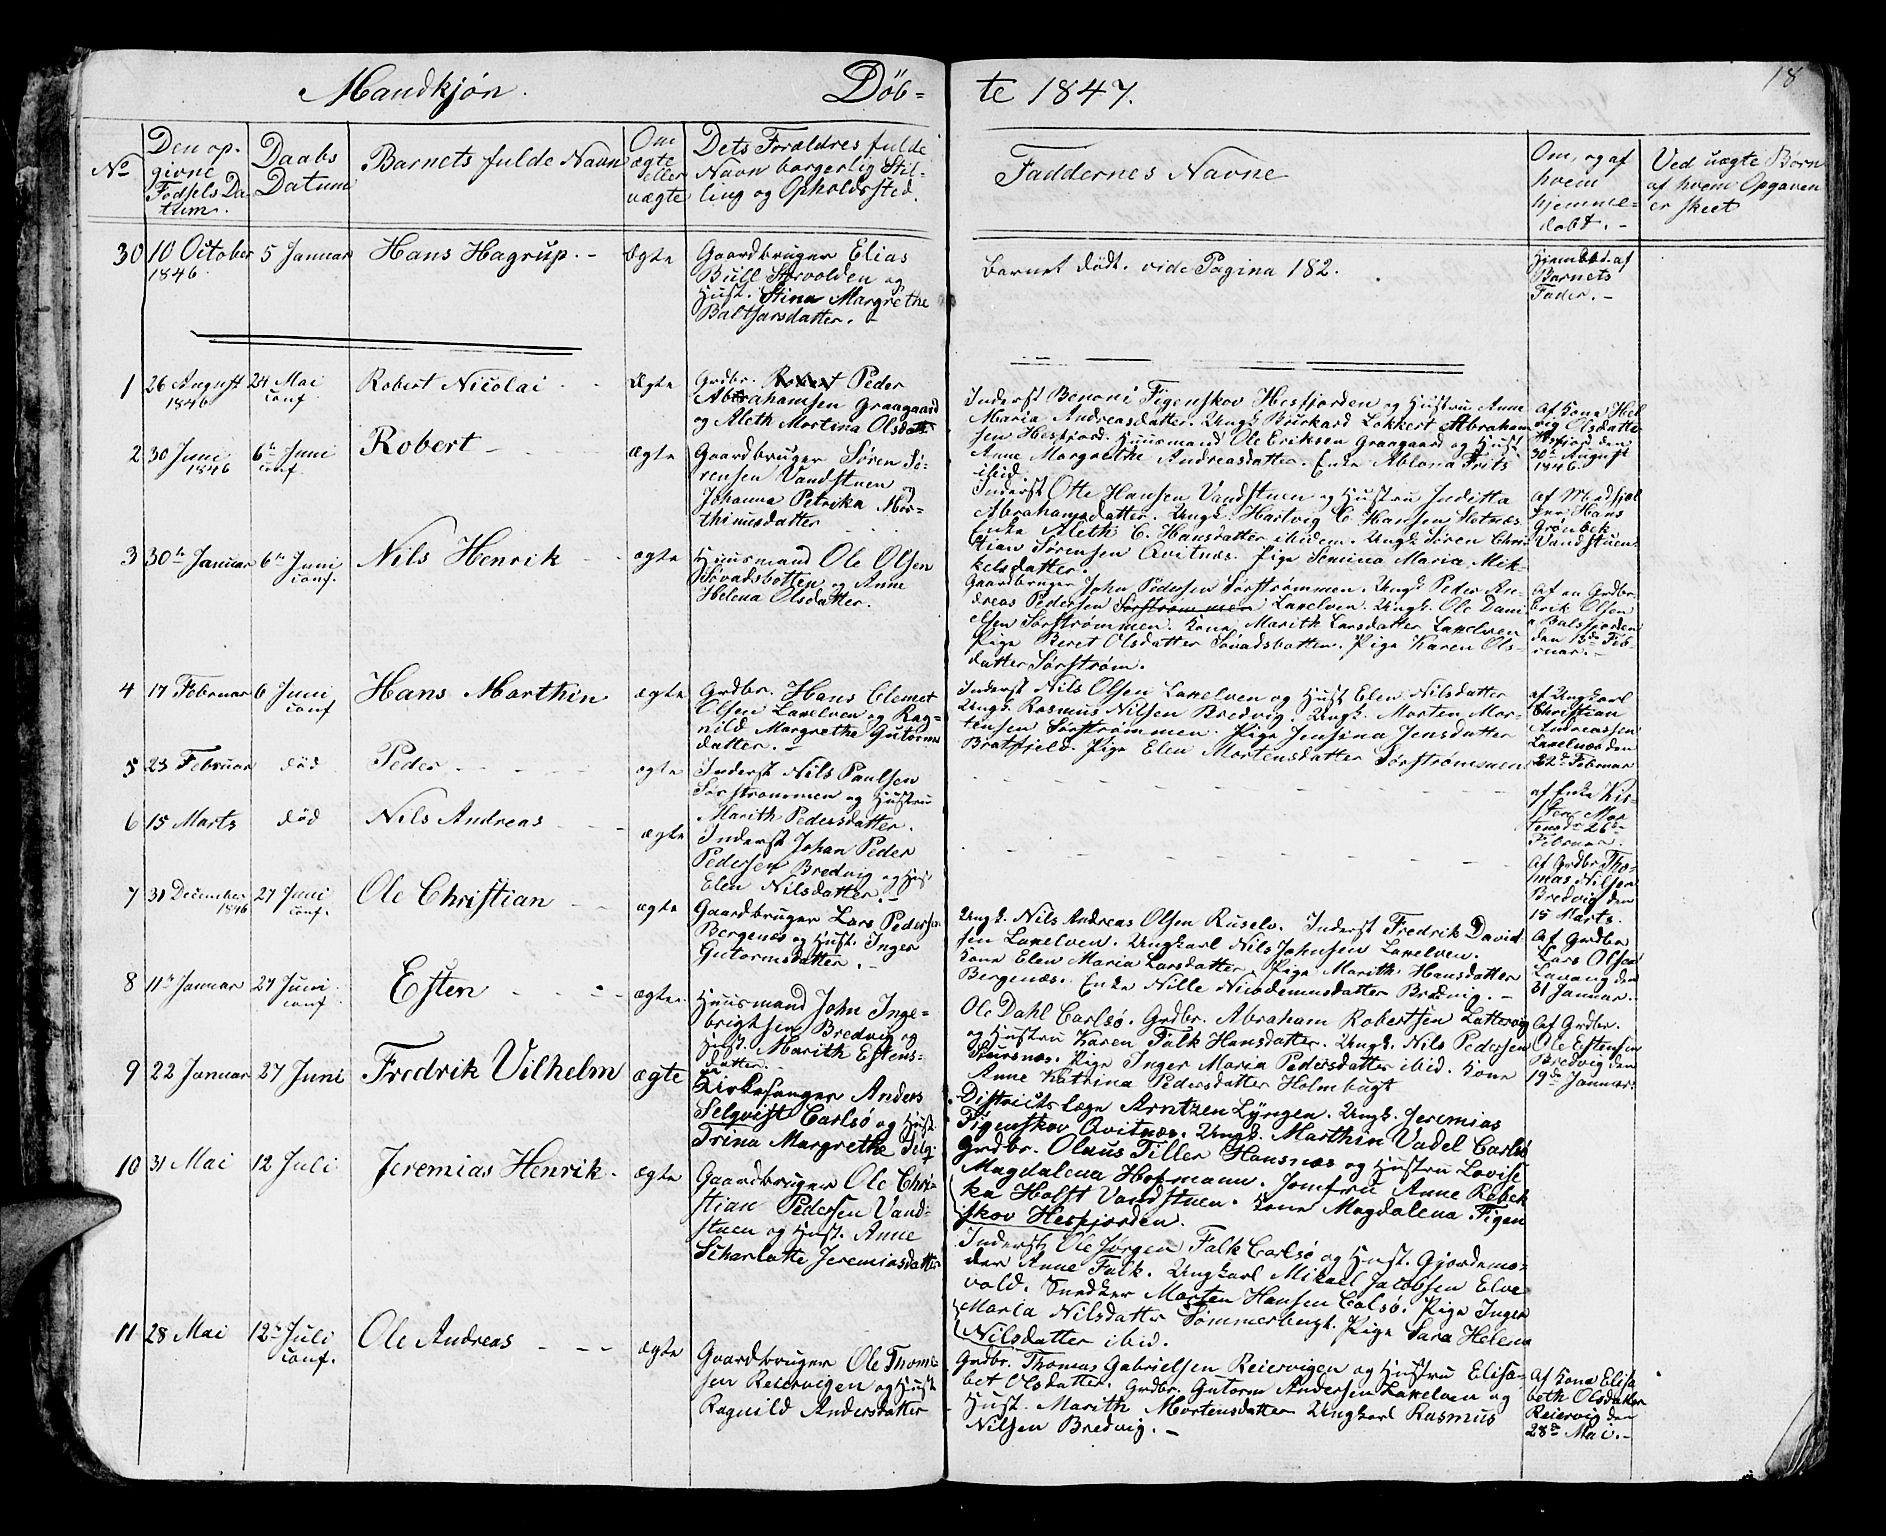 18
Mandkjøn. Döb= te 1847.
No
Den op-
givne
Fødsels Da-
thum.
Daabs
Datum
Barnets fulde Navn
Om
ægte
eller
uægte
Dets Forældres fulde
Navn borgerlig Stil-
ling og Opholdssted.
Faddernes Navne
Om, og af
hvem
hjemme-
døbt. -
Ved uægte Børn
af hvem Opgaven
er skeet
30 10 October 1846 5 Januar Hans Hagrup. - Ægte
Gaardbruger Elias
Bull Storvolden og
Hust. Stina Margrethe
Balthsarsdatter. -
Barnet dödt. vide Pagina 182.
Hjemdöbt. af
Barnets
Fader. -
1 26 August 1846 24 Mai conf. Robert Nicolai - - Ægte
Grdbr. Robert Peder
Abrahamsen Graagaard
og Aleth Martina Olsdatt.
Inderst Benoni Figenskov Hesfjorden og Hustru Anne
Maria Andreasdatter. Ungk. Burkard Lokkert Abraham
sen Hesfjord. Huusmand Ole Eriksen Graagaard og Hust.
Anne Margrethe Andreasdatter. Enke Ablona Frits
ibid.
Af Kona Hed
vig Olsdatter
Hesfjord den
30te August
1846.
2 30 Juni 1846 6te Juni conf Robert - - ægte
Gaardbruger Søren Sø-
rensen Vandstuen og
Johanna Petrika Mor-
thinusdatter
Inderst Otte Hansen Vandstuen og Hustru Juditta
Abrahamsdatter. Ungk. Hartvig C. Hansen Sletnæs.
Enke Aleth C. Hansdatter ibidem. Ungk. Søren Chri
stian Sørensen Qvitnæs. Pige Semina Maria Mik-
kelsdatter.
af Medhjæl
per Hans
Grönbek
Vandstuen.
3 30te Januar 6te Juni conf. Nils Henrik - - ægte
Huusmand Ole Olsen
Sövadsbotten og Anne
Helena Olsdatter.
Gaardbruger John Pedersen Sörströmmen. Ungk. Peder An-
dreas Pedersen Sörströmmen Laxelven. Ungk. Ole Dani
elsen Sörströmmen. Kona Marith Larsdatter Laxelven
Pige Beret Olsdatter Sövadsbotten. Pige Karen Ols-
datter Sörström.
Af en Grdbr.
Erik Olsen
i Balsfjorden
den 13de Feb-
ruar. -
4 17 Februar 6 Juni conf Hans Marthin ægte
Grdbr. Hans Clemet
Olsen Laxelven og Rag-
nild Margrethe Gutorms
datter. -
Inderst Nils Olsen Laxelven og Hust Elen Nilsdatter
Ungk. Rasmus Nilsen Bredvig. Ungk. Morten Mor-
tensen Sörströmmen. Pige Jensina Jensdatter
Bratfjeld. Pige Elen Mortensdatter Sörströmmen
af Ungkarl
Christian
Andreassen
Laxelvnes den
22de Februar
5 23 Februar död Peder - - - ægte
Inderst Nils Paulsen
Sörströmmen og Hustru
Marith Pedersdatter.
af Enke Kir-
sten Mor
tensdr 26de
Februar.
6 15 Marts död Nils Andreas - - ægte
Inderst Johan Peder
Pedersen Bredvig og Hust
Elen Nilsdatter. -
Af Grdbr. Tho-
mas Nilsen
Bredvig den
15 Marts.
7 31 December 1846 27 Juni conf. Ole Christian - - ægte
Gaardbruger Lars Pedersen
Bergenæs og Hust. Inger
Gutormsdatter. -
Ungk. Nils Andreas Olsen Ruselv. Inderst Fredrik David
sen Laxelven. Ungkarl Nils Johnsen Laxelven.
Kona Elen Maria Larsdatter. Pige Marith Hansdatter
Bergenæs. Enke Nille Nicodemusdatter Bredvig. -
Af Grdbr
Lars Olsen
Lanæng den
31 Januar. -
8 11te Januar 27 Juni conf. Esten - - ægte.
Huusmand John Inge-
brigtsen Bredvig og
Hust. Marith Estens-
datter.
Ole Dahl Carlsö. Grdbr. Abraham Robertsen Lattervig
og Hustru Karen Falk Hansdatter. Ungk. Nils Pedersen
Stursnæs. Pige Inger Maria Pedersdatter ibid. Kone
Anne Katrina Pedersdatter Holmbugt
Af Grdbr.
Ole Estensen
Bredvig den
19de Januar.
9 22 Januar 27 Juni Fredrik Vilhelm ægte
Kirkesanger Anders
Selqvist Carlsö og Hust.
Trina Margrethe Selq.
Districtslæge Arntzen Lyngen. Ungk. Jeremias
Figenskov Qvitnæs. Ungk. Marthin Vadel Carlsö
Grdbr. Olaus Tiller Hansnæs og Hustru Lovise
Magdalena Hofmann. Jomfru Anne Rebek
ka Holst Vandstuen. Kone Magdalena Figen
skov Hesfjorden.
10 31 Mai 12 Juli Jeremias Henrik. ægte
Gaardbruger Ole Chri-
stian Pedersen Vand-
stuen og Hust. Anne
Scharlotte Jeremiasdatter
Inderst Ole Jørgen Falk Carlsö og Hust. Gjordemo-
der Anne Falk. Ungkarl Mikael Jacobsen Elve
vold. Snedker Morten Hansen Calsö. Pige Inger
Maria Nilsdatter Sommerbugt. Pige Sara Helena
Nilsdatter ibid.
11 28 Mai 12te Juli conf. Ole Andreas - - - ægte
Gaardbruger Ole Thom-
sen Reiervigen og Hust.
Ragnild Andersdatter
Grdbr. Thomas Gabrielsen Reiervigen og Hustru Elisa-
bet Olsdatter. Grdbr. Gutorm Andersen Laxelven og
Hust. Marith Mortensdatter Ungkarl Rasmus
Nilsen Bredvig. -
Af Kona Elisa
beth Olsdatter
Reiervig den
28de Mai. -